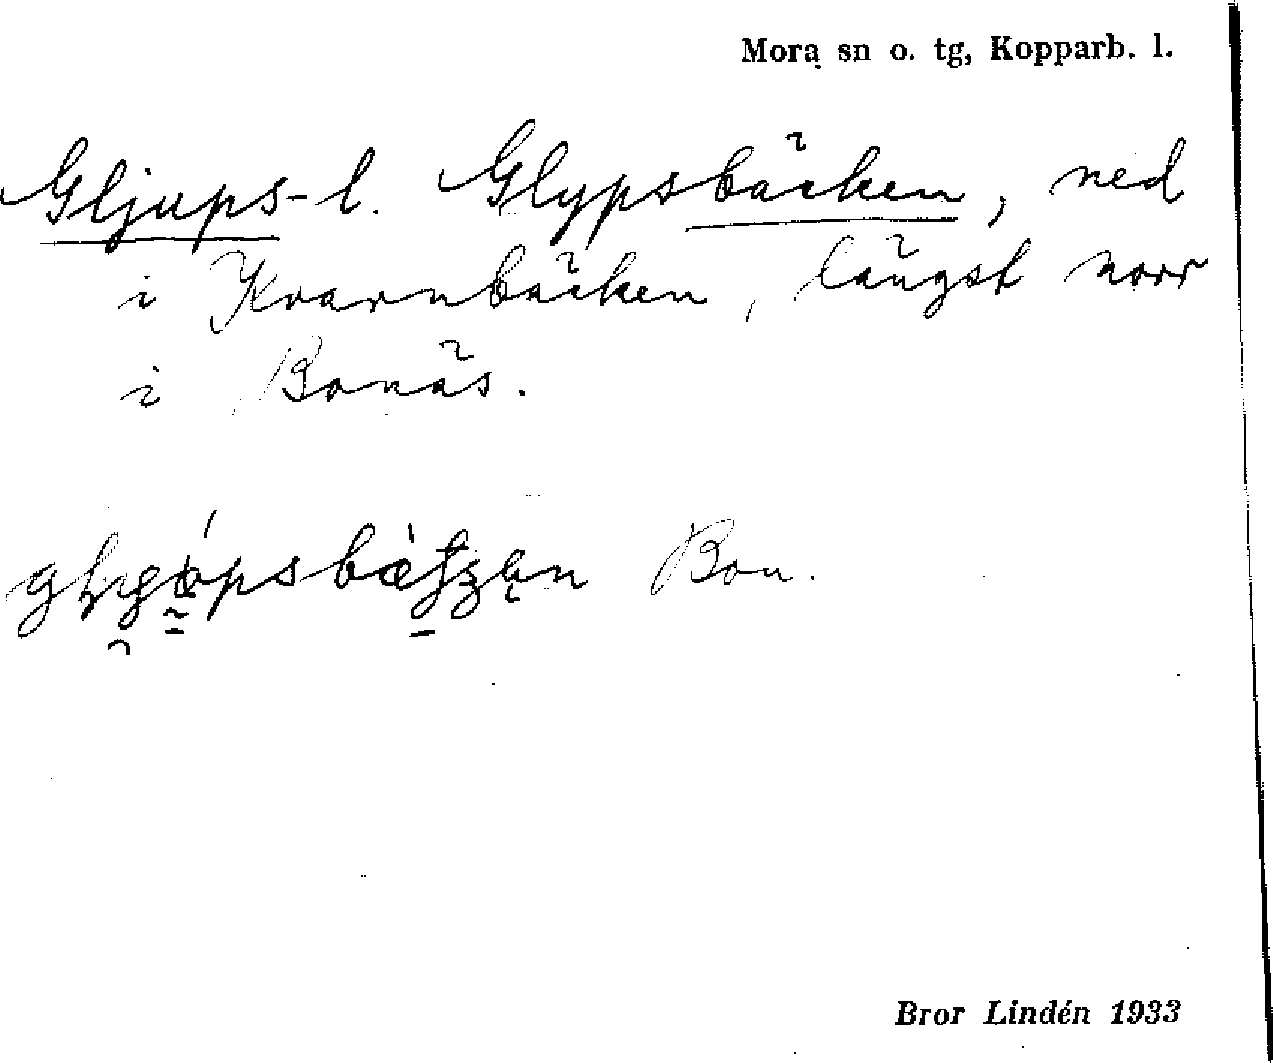 Mora sn o. tg, Kopparb. l.
Gljups- l. Glypsbäcken, ned
i Kvarnbäcken, längst norr
i Bonäs.
Bon.
Bror Lindén 1933